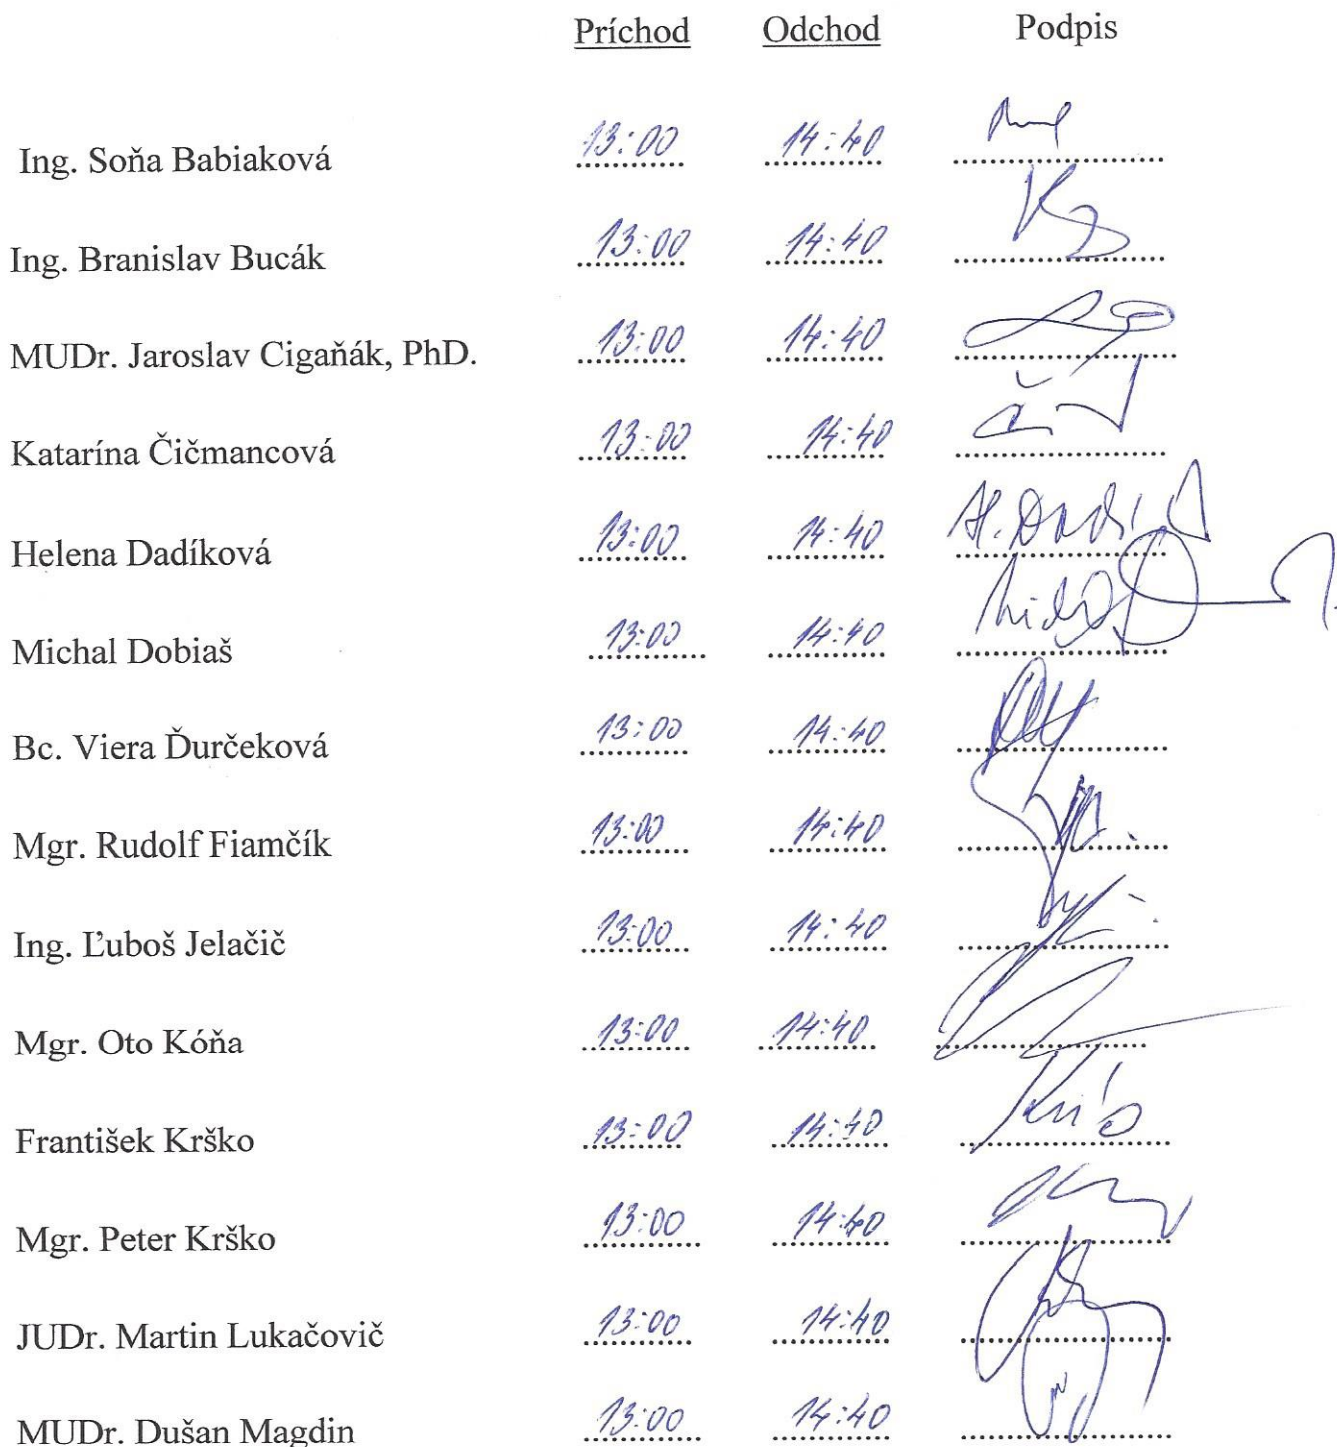 Príchod Odchod Podpis
Ing. Soňa Babiaková 13:00 14:40
Ing. Branislav Bucák 13:00 14:40
MUDr. Jaroslav Cigaňák, PhD. 13:00 14:40
Katarína Čičmancová 13:00 14:40
Helena Dadíková 13:00 14:40
Michal Dobiaš 13:00 14:40
Bc. Viera Ďurčeková 13:00 14:40
Mgr. Rudolf Fiamčík 13:00 14:40
Ing. Ľuboš Jelačič 13:00 14:40
Mgr. Oto Kóňa 13:00 14:40
František Krško 13:00 14:40
Mgr. Peter Krško 13:00 14:40
JUDr. Martin Lukačovič 13:00 14:40
MUDr. Dušan Magdin 13:00 14:40